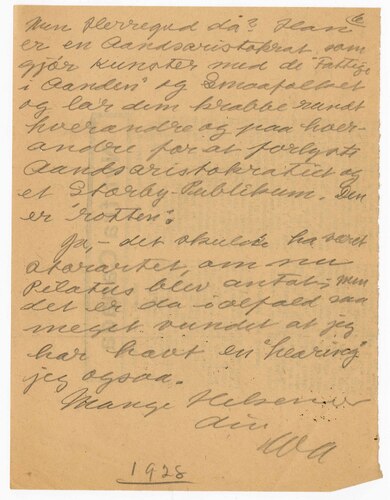 6
Men Herregud då? Han
er en Aandsaristokrat, som
gjør Kunster med de "Fattige
i Aanden" og Smaafolket
og lar dem krabbe rundt
hverandre og paa hver-
andre for at forlyste
Aandsaristokratiet og
et Storby-Publikum. Den
er "rotten".
Ja, - det skulde ha været
storartet, om nu
Pilatus blev antat; men
det er da ialfald saa
meget vundet at jeg
har havt en "hearing"
jeg ogsaa.
Mange Hilsener
din
WA
1928